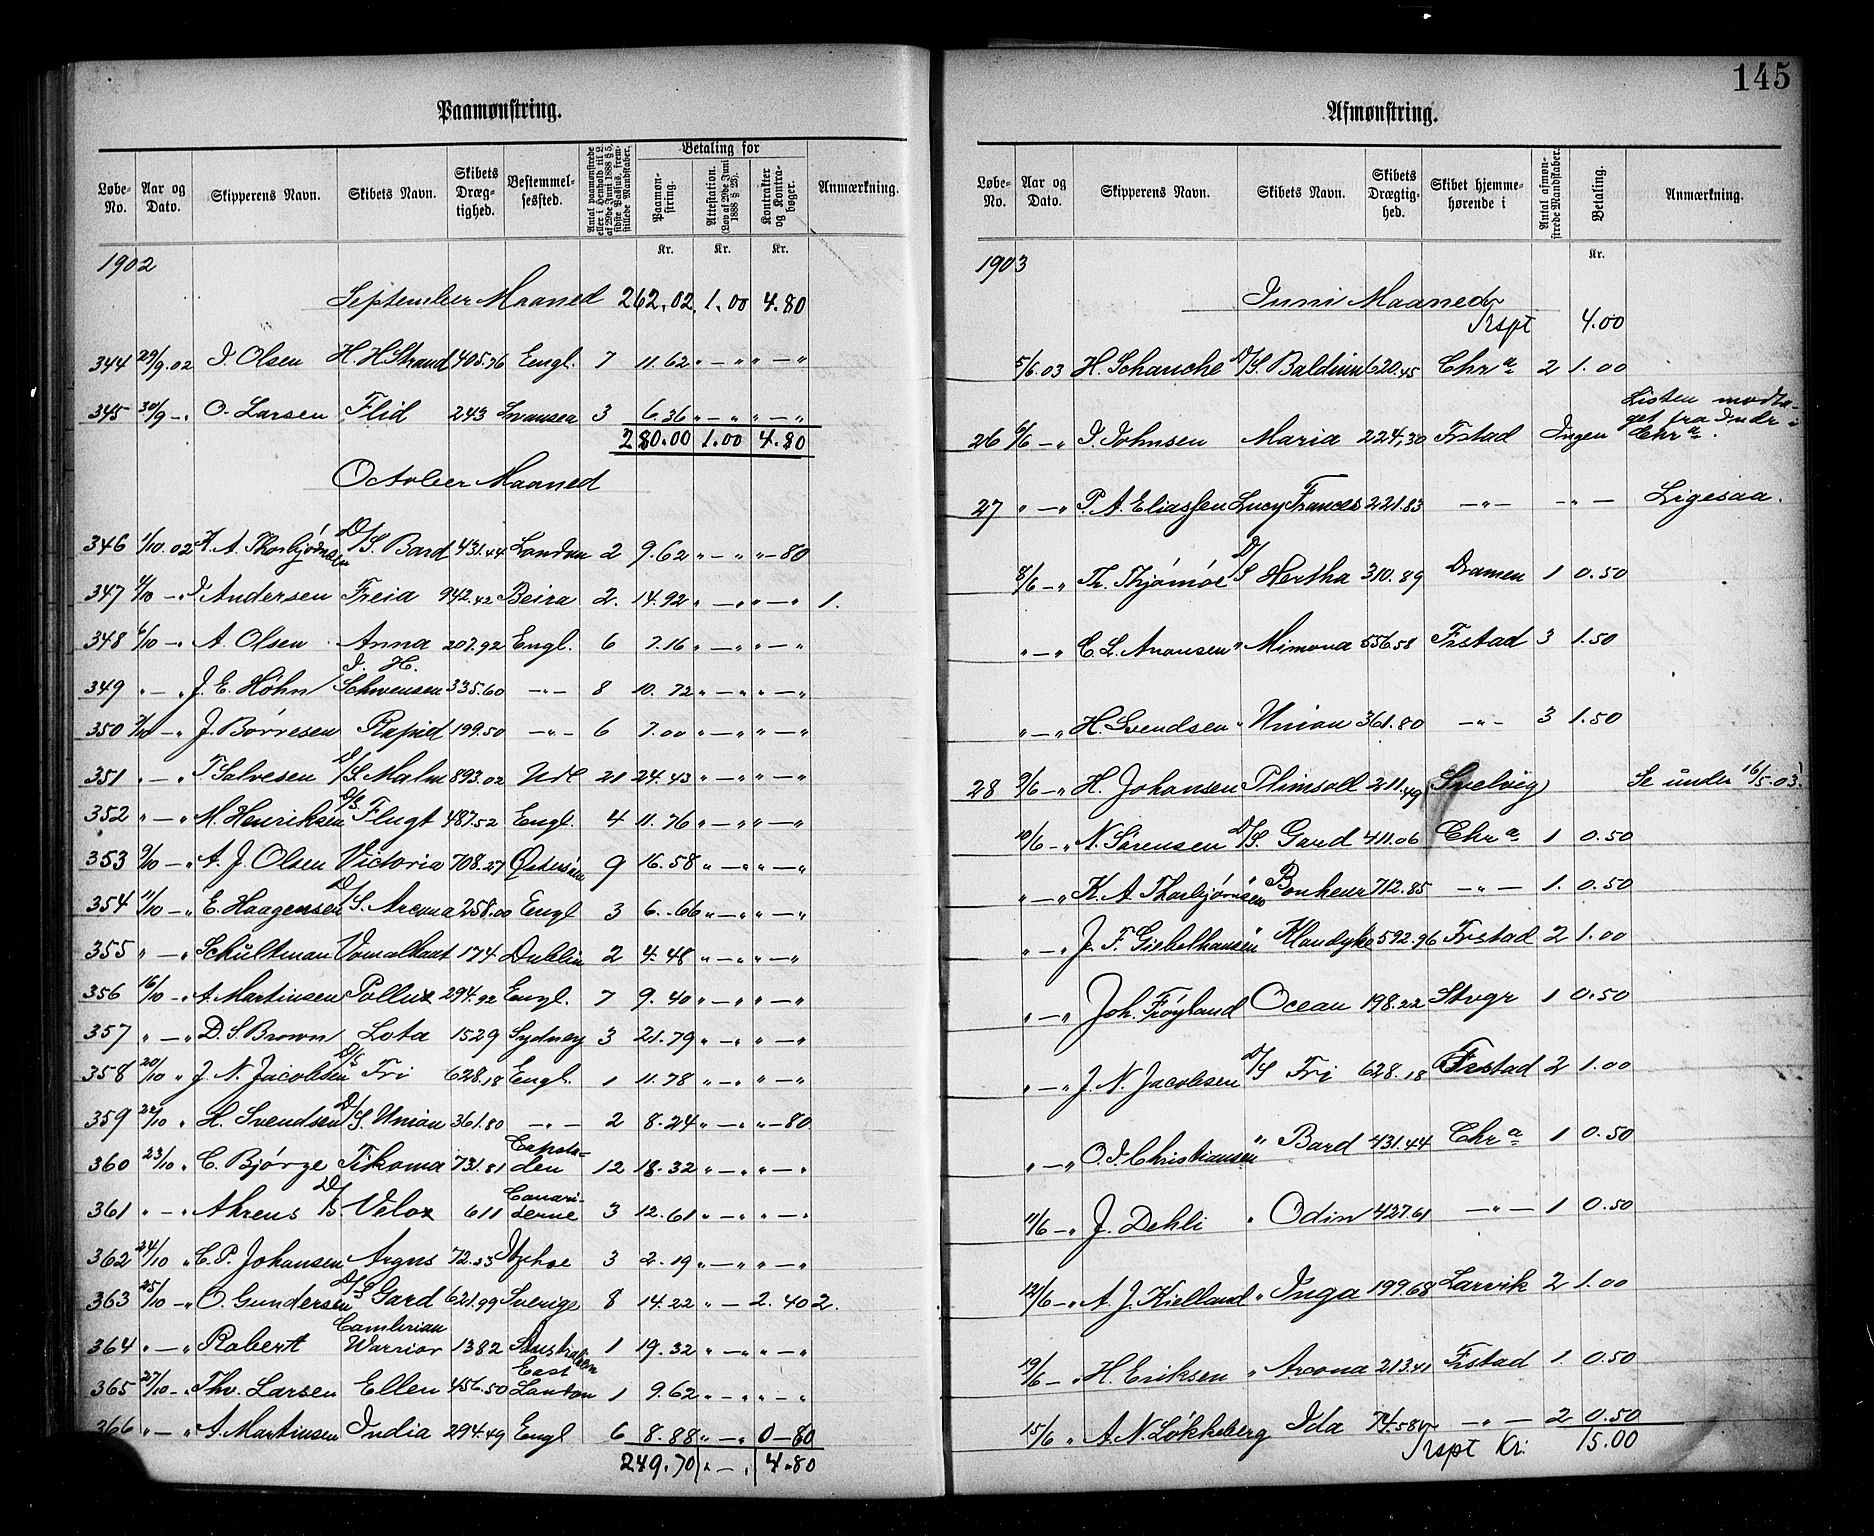 145
Paamønstring.
Løbe-No. Aar og Dato. Skipperens Navn. Skibets Navn. Skibets Dræg-tighed. Bestemmel-sessted. Antal paamønstrede eller i Henhold til L. af 29de Juni 1888 § 5, sidste Passus, frem-stillede Mandskaber. Betaling for Paamøn-string. Attestation. (Lov af 29de Juni 1888 § 23). Kontrakter og Kontra-bøger. Anmærkning.
Kr. Kr. Kr.
1902
September Maaned 262.02 1.00 4.80
344 29/9.02 I. Olsen H. H Strand 405.76 Engl. 7 11.62 " — " " — "
345 30/9 — " O. Larsen Flid 243 Swansea 3 6.36 " — " " — "
280.00 1.00 4.80
October Maaned
346 1/10.02 K. A. Thorbjörnsen D/S. Bard 431.44 London 2 9.62 " — " " — 80
347 4/10 — " I Andersen Freia 942.42 Beira 2. 14.92 " — " " — " 1.
348 6/10 — " A. Olsen Anna 207.92 Engl. 6 7.16 " — " " — "
349 " — " J. E. Höhn I. H. Schwensen 335.60 — " — 8 10.72 " — " " — "
350 7/10 — " J. Børresen Rapid 199.50 — " — 6 7.00 " — " " — "
351 " — " T. Salvesen D/S. Malm 893.02 Udl 21 24.43 " — " " — "
352 " — " M. Henriksen D/S. Flugt 487.52 Engl. 4 11.76 " — " " — "
353 9/10 — " A. J. Olsen Victoria 708.27 Østersøen 9 16.58 " — " " — "
354 11/10 — " E. Haagensen D/S. Arcona 258.00 Engl 3 6.66 " — " " — "
355 " — " Schultman 174 Dublin 2 4.48 " — " " — "
356 16/10 — " A. Martinsen Pollux 294.92 Engl. 7 9.40 " — " " — "
357 " — " D. S. Brown Lota 1529 Sydney 3 21.79 " — " " — "
358 20/10 " J. N. Jacobsen D/S Fri 628.18 Engl. 1 11.78 " — " " — "
359 22/10 " H. Svendsen D/S. Union 361.80 — " — 2 8.24 " — " " — 80
360 23/10 " C. Bjørge Tikoma 731.81 Capsta-den 12 18.32 " — " " — "
361 " — " Ahrens D/S. Velox 611 Canari-serne 3 12.61 " — " " — "
362 24/10 " C. P. Johansen Argus 72.23 Itzehoe 3 2.19 " — " " — "
363 25/10 — " O. Gundersen D/S Gard 621.99 Sverige 8 14.22 " — 2.40 2.
364 " — " Robert Cambrian Warrior 1382 Australien 1 19.32 " — " " — "
365 27/10 — " Thv. Larsen Ellen 456.50 East London 1 9.62 " — " " — "
366 " — " A. Martinsen India 294.49 Engl 6 8.88 " — " 0 — 80
249.70 " — " 4.80
Afmønstring.
Løbe-No. Aar og Dato. Skipperens Navn. Skibets Navn. Skibets Drægtig-hed. Skibet hjemme-hørende i Antal afmøn-strede Mandskaber. Betaling. Anmærkning.
Kr.
1903
Juni Maaned
Trspt 4.00
5/6.03 H. Schanche D/S. Baldwin 620.45 Chr a 2 1.00
26 6/6 — " I. Johnsen Maria 224.30 Frstad Ingen Listen modta-get fra Indr i Chr a.
27 " — " P. A. Eliassen Lucy Frances 221.83 — " — — " — Ligesaa.
8/6 — " Th. Thjømøe D/S Hertha 310.89 Dramen 1 0.50
" — " C. L. Aronsen " Mimona 556.58 Frstad 3 1.50
" — " H. Svendsen " Union 361.80 — " — 3 1.50
28 9/6 — " H. Johansen Plimsoll 211.49 Svelvig Se under 16/5.03.
10/6 — " N. Sörensen D/S. Gard 411.06 Chr a 1 0.50
" — " K. A. Thorbjörnsen " Bonheur 712.85 — " — 1. 0.50
" — " J. F. Giskelhansen " Klondyke 592.96 Frstad 2 1.00
" — " Joh. Frøyland Ocean 198.22 Stvgr 1 0.50
" — " J. N. Jacobsen D/S Fri 628.18 Frstad 2 1.00
" — " O. I. Christiansen " Bard 431.44 Chr a 1 0.50
11/6 — " J. Dehli " Odin 427.61 — " — 1 0.50
12/6 — " A. J. Kielland " Inga 199.68 Larvik 2 1.00
13/6 — " H. Eriksen " Arcona 213.41 Frstad 1. 0.50
15/6 " A. N. Løkkeberg Ida 74.58 — " — 2 0.50
Trspt Kr. 15.00